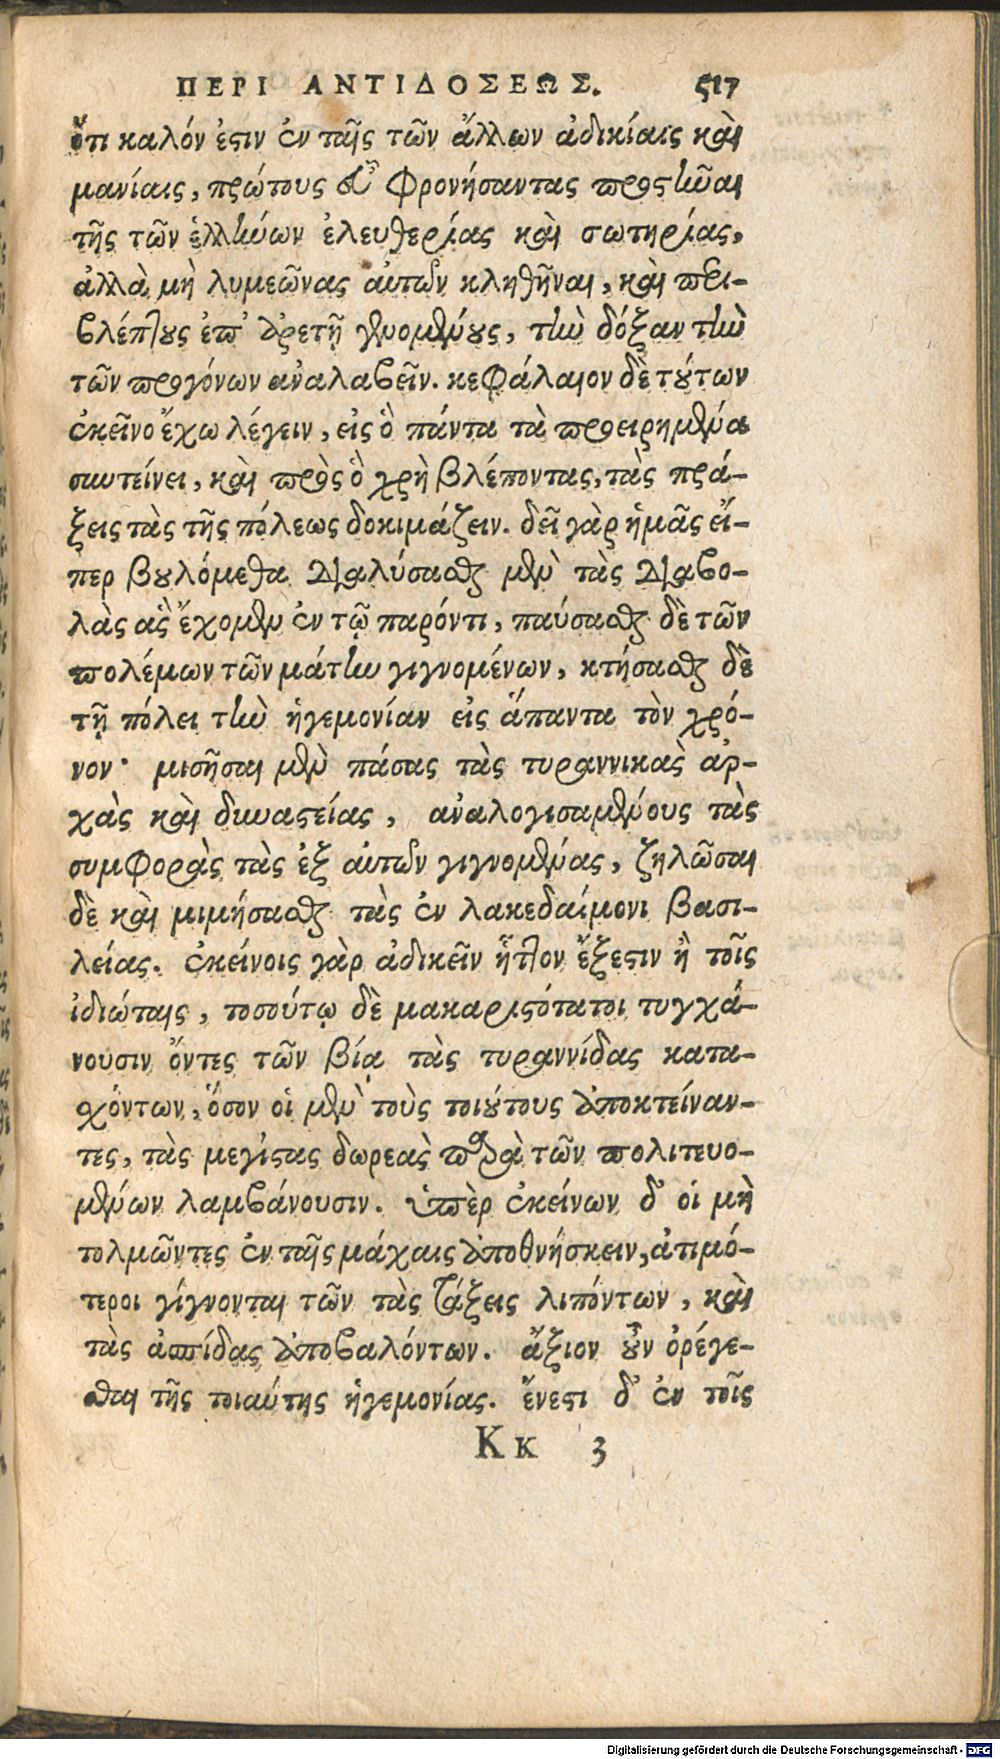 ΠΕΡΙ ΑΝΤΙΔΟΣΕΩΣ. 517
ὅτι καλόν ἐστιν ἐν ταῖς τῶν ἄλλων ἀδικίαις καὶ
μανίαις, πρώτους εὖ φρονήσαντας προστῆναι
τῆς τῶν ἑλλήνων ἐλευθερίας καὶ σωτηρίας,
ἀλλὰ μὴ λυμεῶνας αὐτῶν κληθῆναι, καὶ περι-
βλέπτους ἐπ' ἀρετῇ γενομένους, τὴν δόξαν τὴν
τῶν προγόνων ἀναλαβεῖν. κεφάλαιον δὲ τούτων
ἐκεῖνο ἔχω λέγειν, εἰς ὃ πάντα τὰ προειρημένα
συντείνει, καὶ πρὸς ὃ χρὴ βλέποντας, τὰς πρά-
ξεις τὰς τῆς πόλεως δοκιμάζειν. δεῖ γὰρ ἡμᾶς εἴ-
περ βουλόμεθα διαλύσασθαι μὲν τὰς διαβο-
λὰς ἃς ἔχομεν ἐν τῷ παρόντι, παύσασθαι δὲ τῶν
πολέμων τῶν μάτην γιγνομένων, κτήσασθαι δὲ
τῇ πόλει τὴν ἡγεμονίαν εἰς ἅπαντα τὸν χρό-
νον· μισῆσαι μὲν πάσας τὰς τυραννικὰς ἀρ-
χὰς καὶ δυναστείας, ἀναλογισαμένους τὰς
συμφορὰς τὰς ἐξ αὐτῶν γιγνομένας, ζηλῶσαι
δὲ καὶ μιμήσασθαι τὰς ἐν λακεδαίμονι βασι-
λείας. ἐκείνοις γὰρ ἀδικεῖν ἧττον ἔξεστιν ἢ τοῖς
ἰδιώταις, τοσούτῳ δὲ μακαριστότατοι τυγχά-
νουσιν ὄντες τῶν βίᾳ τὰς τυραννίδας κατα-
χόντων, ὅσον οἱ μὲν τοὺς τοιούτους ἀποκτείναν-
τες, τὰς μεγίστας δωρεὰς παρὰ τῶν πολιτευο-
μένων λαμβάνουσιν. ὑπὲρ ἐκείνων δ' οἱ μὴ
τολμῶντες ἐν ταῖς μάχαις ἀποθνήσκειν, ἀτιμό-
τεροι γίγνονται τῶν τὰς τάξεις λιπόντων, καὶ
τὰς ἀσπίδας ἀποβαλόντων. ἄξιον οὖν ὀρέγε-
σθαι τῆς τοιαύτης ἡγεμονίας. ἔνεστι δ' ἐν τοῖς
Κκ 3
Digitalisierung gefördert durch die Deutsche Forschungsgemeinschaft - DFG